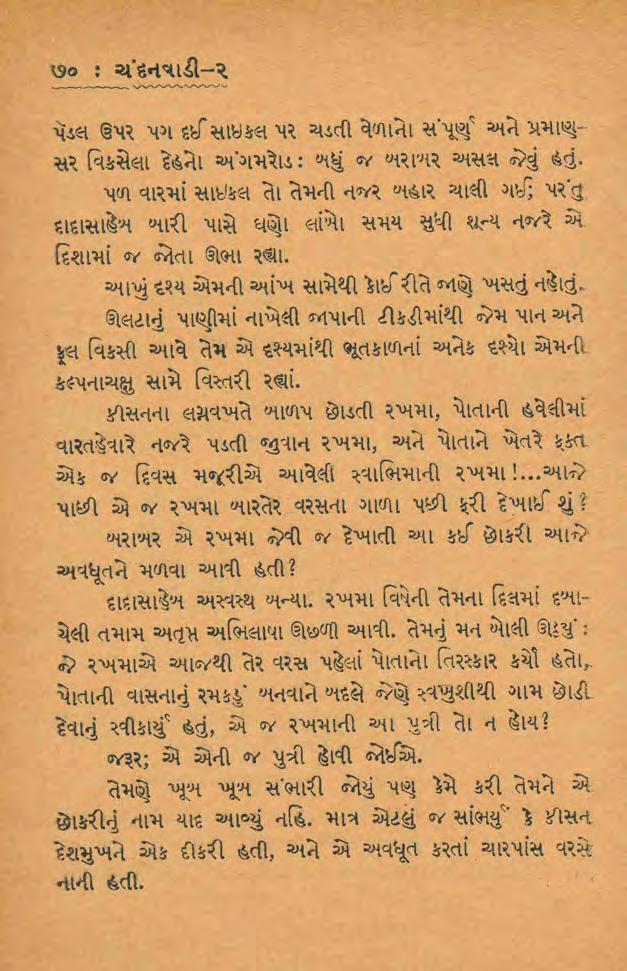 ૭૦ : ચંદનવાડી–૨
પૅડલ ઉપર પગ દઈ સાઇકલ પર ચડતી વેળાનો સંપૂર્ણ અને પ્રમાણ-
સર વિકસેલા દેહનો અંગમરોડ: બધું જ બરાબર અસલ જેવું હતું.
પળ વારમાં સાઇકલ તો તેમની નજર બહાર ચાલી ગઈ; પરંતુ
દાદાસાહેબ બારી પાસે ઘણો લાંબો સમય સુધી શૂન્ય નજરે એ
દિશામાં જ જોતા ઊભા રહ્યા.
આખું દૃશ્ય એમની આંખ સામેથી કોઈ રીતે જાણે ખસતું નહોતું.
ઊલટાનું પાણીમાં નાખેલી જાપાની ટીકડીમાંથી જેમ પાન અને
ફૂલ વિકસી આવે તેમ એ દૃશ્યમાંથી ભૂતકાળનાં અનેક દૃશ્યો એમની
કલ્પનાચક્ષુ સામે વિસ્તરી રહ્યાં.
કીસનના લગ્નવખતે બાળપ છોડતી રખમા, પોતાની હવેલીમાં
વારતહેવારે નજરે પડતી જુવાન રખમા, અને પોતાને ખેતરે ફક્ત
એક જ દિવસ મજૂરીએ આવેલી સ્વાભિમાની રખમા!...આજે
પાછી એ જ રખમા બારતેર વરસના ગાળા પછી ફરી દેખાઈ શું?
બરાબર એ રખમા જેવી જ દેખાતી આ કઈ છોકરી આજે
અવધૂતને મળવા આવી હતી?
દાદાસાહેબ અસ્વસ્થ બન્યા. રખમા વિષેની તેમના દિલમાં દબા-
યેલી તમામ અતૃપ્ત અભિલાષા ઊછળી આવી. તેમનું મન બોલી ઊઠ્યું :
જે રખમાએ આજથી તેર વરસ પહેલાં પોતાનો તિરસ્કાર કર્યો હતો,
પોતાની વાસનાનું રમકડું બનવાને બદલે જેણે સ્વખુશીથી ગામ છોડી
દેવાનું સ્વીકાર્યું હતું, એ જ રખમાની આ પુત્રી તો ન હોય?
જરૂર; એ એની જ પુત્રી હોવી જોઈએ.
તેમણે ખૂબ ખૂબ સંભારી જોયું પણ કેમે કરી તેમને એ
છોકરીનું નામ યાદ આવ્યું નહિ. માત્ર એટલું જ સાંભર્યું કે કીસન
દેશમુખને એક દીકરી હતી, અને એ અવધૂત કરતાં ચારપાંસ વરસે
નાની હતી.